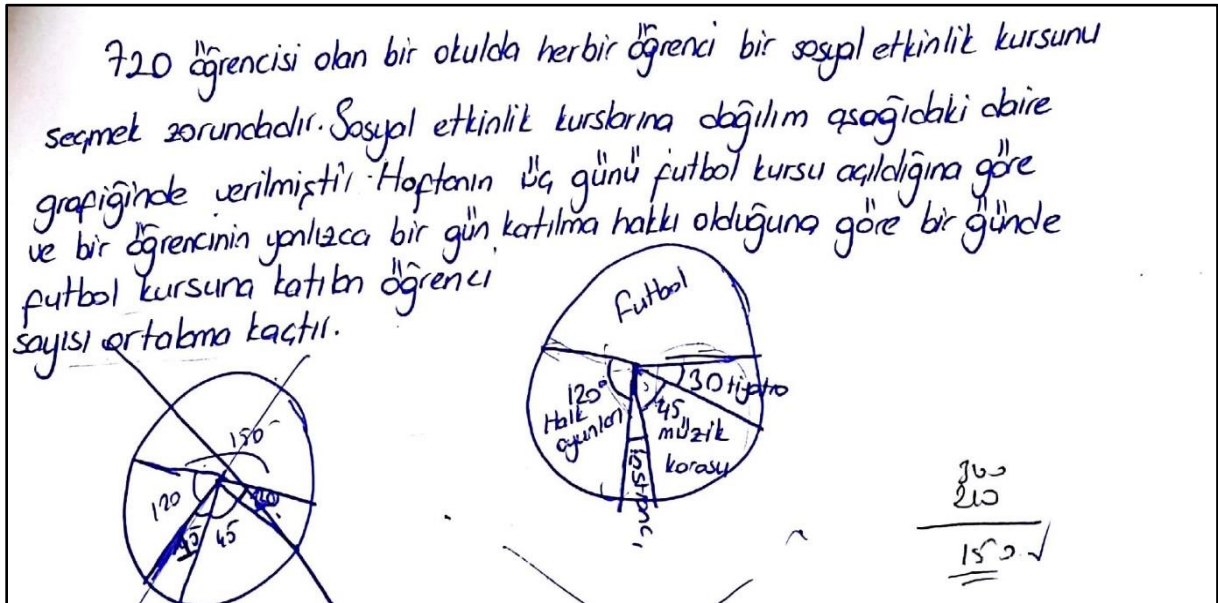 720 öğrencisi olan bir okulda herbir öğrenci bir sosyal etkinlik kursunu
seçmek zorundadır. Sosyal etkinlik kurslarına dağılım aşağıdaki daire
grafiğinde verilmiştir. Haftanın üç günü futbol kursu açıldığına göre
ve bir öğrencinin yanlızca bir gün katılma hakkı olduğuna göre bir günde
futbol kursuna katılan öğrenci
sayısı ortalama kaçtır.
Futbol
120°
Halk
oyunları
30 tiyatro
45
müzik
korosu
150
120
45
15
150